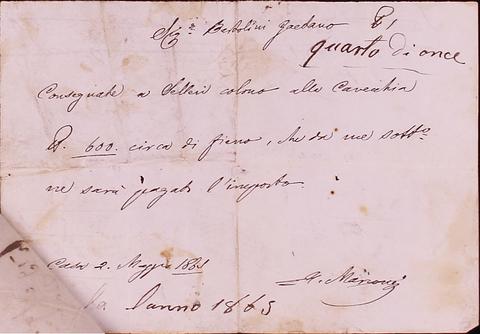 Sig.re Bertolini Gaetano
quarto di once
Consegnate a Selleri colono alla Cavecchia
600. circa di fieno, che da me sotto
ne sarà pagato l'importo.
Casa 2. Maggio 1865
G. Marconi
la l'anno 1865